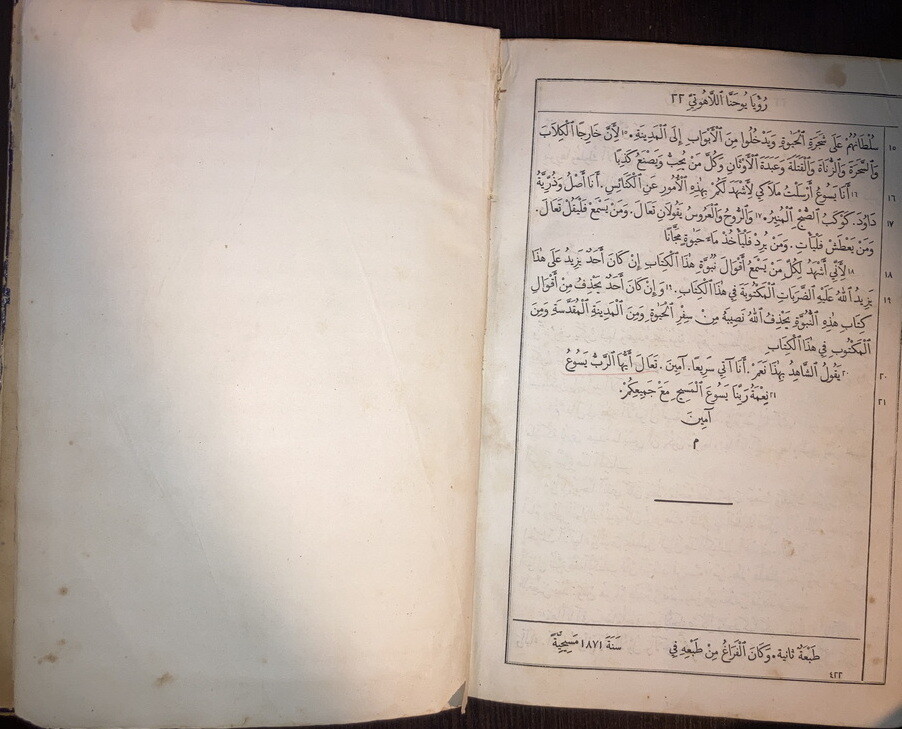 رُؤْيَا يُوحَنَّا ٱللَّاهُوتِيِّ ٢٢
١٥ سُلْطَانُهُمْ عَلَى شَجَرَةِ ٱلْحَيٰوةِ وَيَدْخُلُوا مِنَ ٱلْأَبْوَابِ إِلَى ٱلْمَدِينَةِ. ١٥ لِأَنَّ خَارِجًا ٱلْكِلَابَ
وَٱلسَّحَرَةَ وَٱلزُّنَاةَ وَٱلْقَتَلَةَ وَعَبَدَةَ ٱلْأَوْثَانِ وَكُلَّ مَنْ يُحِبُّ وَيَصْنَعُ كَذِبًا
١٦ ١٦ أَنَا يَسُوعُ أَرْسَلْتُ مَلَاكِي لِأَشْهَدَ لَكُمْ بِهٰذِهِ ٱلْأُمُورِ عَنِ ٱلْكَنَائِسِ. أَنَا أَصْلُ وَذُرِّيَّةُ
١٧ دَاوُدَ. كَوْكَبُ ٱلصُّبْحِ ٱلْمُنِيرُ. ١٧ وَٱلرُّوحُ وَٱلْعَرُوسُ يَقُولَانِ تَعَالَ. وَمَنْ يَسْمَعْ فَلْيَقُلْ تَعَالَ.
وَمَنْ يَعْطَشْ فَلْيَأْتِ. وَمَنْ يُرِدْ فَلْيَأْخُذْ مَاءَ حَيٰوةٍ مَجَّانًا
١٨ ١٨ لِأَنِّي أَشْهَدُ لِكُلِّ مَنْ يَسْمَعُ أَقْوَالَ نُبُوَّةِ هٰذَا ٱلْكِتَابِ إِنْ كَانَ أَحَدٌ يَزِيدُ عَلَى هٰذَا
١٩ يَزِيدُ ٱللهُ عَلَيْهِ ٱلضَّرَبَاتِ ٱلْمَكْتُوبَةَ فِي هٰذَا ٱلْكِتَابِ. ١٩ وَإِنْ كَانَ أَحَدٌ يَحْذِفُ مِنْ أَقْوَالِ
كِتَابِ هٰذِهِ ٱلنُّبُوَّةِ يَحْذِفُ ٱللهُ نَصِيبَهُ مِنْ سِفْرِ ٱلْحَيٰوةِ وَمِنَ ٱلْمَدِينَةِ ٱلْمُقَدَّسَةِ وَمِنَ
ٱلْمَكْتُوبِ فِي هٰذَا ٱلْكِتَابِ
٢٠ ٢٠ يَقُولُ ٱلشَّاهِدُ بِهٰذَا نَعَمْ. أَنَا آتِي سَرِيعًا. آمِينَ. تَعَالَ أَيُّهَا ٱلرَّبُّ يَسُوعُ
٢١ ٢١ نِعْمَةُ رَبِّنَا يَسُوعَ ٱلْمَسِيحِ مَعَ جَمِيعِكُمْ.
آمِينَ
م
طَبْعَةٌ ثَانِيَة. وَكَانَ ٱلْفَرَاغُ مِنْ طَبْعِهِ فِي سَنَةَ ١٨٧١ مَسِيحِيَّةً
٤٢٢